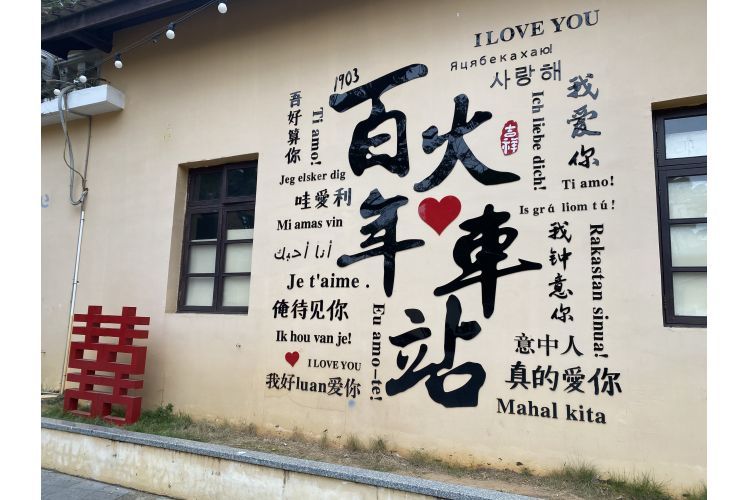 I LOVE YOU
Яцябекахаю
사랑해
1903
百年
火車站
吉祥
吾好算你
Ti amo!
Jeg elsker dig
哇愛利
Mi amas vin
أنا أحبك
Je t'aime .
俺待见你
Ik hou van je!
I LOVE YOU
我好luan爱你
Eu amo-te!
Ich liebe dich!
我爱你
Ti amo!
Is grá liom tú!
我钟意你
Rakastan sinua!
意中人
真的愛你
Mahal kita
囍